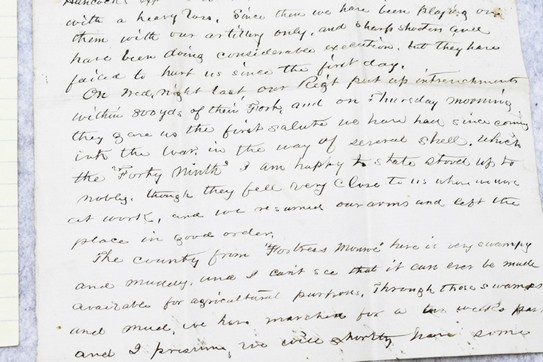 with a heavy loss. Since then we have been playing on
them with our artillery only, and sharp shooters guns
have been doing considerable execution, but they have
failed to hurt us since the first day.
On Wed, night last our Regt put up intrenchments
within 800 yds of their Fort, and on Thursday morning
they gave us the first salute we have had since coming
into the war in the way of several shell. which
the "Forty Ninth" I am happy to state stood up to
nobly, though they fell very close to us when we were
at work, and we resumed our arms and left the
place in good order.
The country from "Fortress Monroe" here is very swampy
and muddy, and I can't see that it can ever be made
available for agricultural purpose, Through these swamps
and mud, we have marched for a two weeks past
and I presume, we will shortly have some